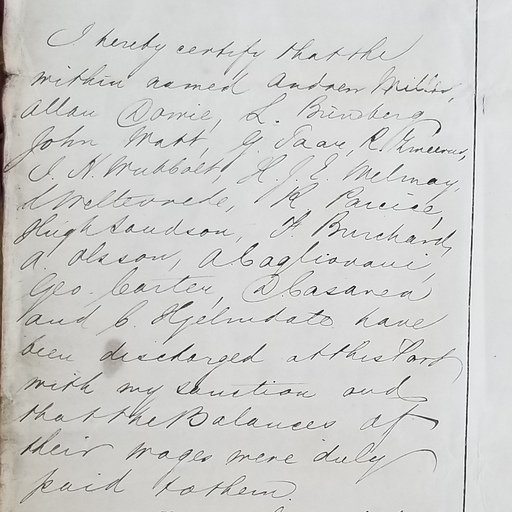 I hereby certify that the
within named Andrew Miller,
Allan Dowie, L. Bunsberg
John Watt, G. Saar, R.
I. H. Wubbolt, H. J. E.
d Weltevrede, R
Hugh Loudson, F Burchard,
A. Olsson, A Cagliovani,
Geo. Carter, D Casanea
and C. Hjelmdatt have
been discharged at this Port
with my sanction and
that the Balances of
their wages were duly
paid to them.